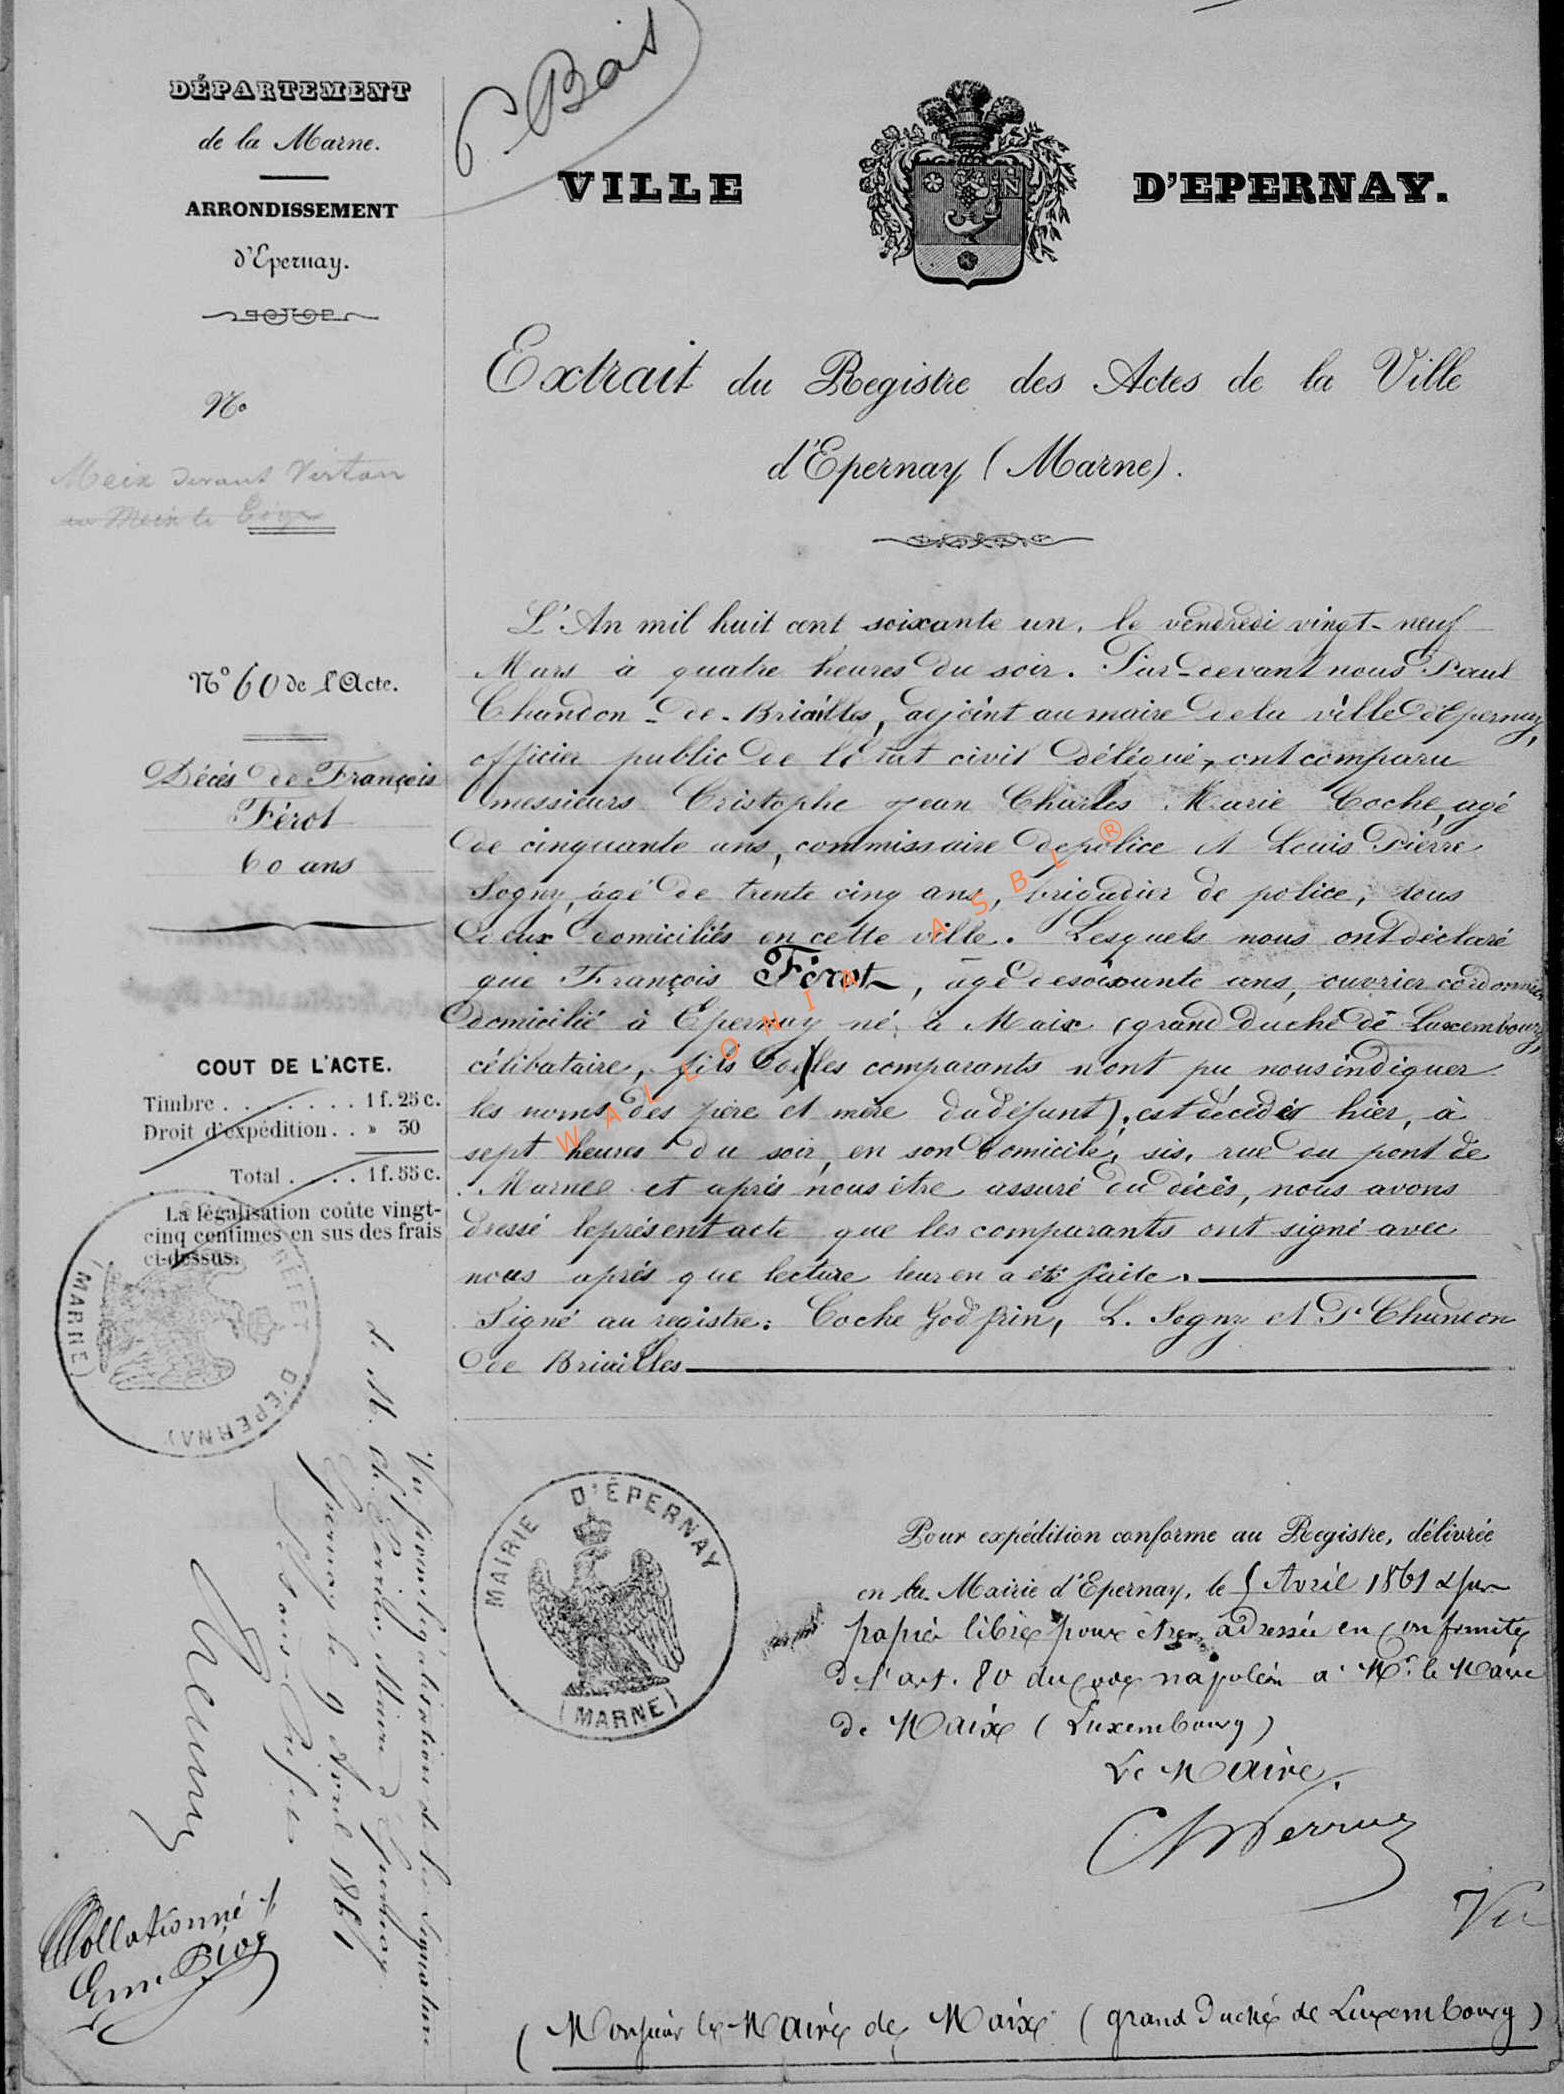 P. Bois
DÉPARTEMENT
de la Marne.
ARRONDISSEMENT
d'Epernay.
VILLE D'EPERNAY.
N
Extrait du Registre des Actes de la Ville
d'Epernay (Marne).
No
Meix devant Virton
L'An mil huit cent soixante un, le vendredi vingt-neuf
Mars à quatre heures du soir. Par-devant nous Paul
Chandon-de-Briailles, adjoint au maire de la ville d'Epernay,
officier public de l'état civil délégué, ont comparu
messieurs Cristophe Jean Charles Marie Coche, agé
de cinquante ans, commissaire de police et Louis Pierre
Sogny, âgé de trente cinq ans, brigadier de police, tous
deux domiciliés en cette ville. Lesquels nous ont déclaré
que François Férot, âgé de soixante ans, ouvrier cordonnier
domicilié à Epernay né à Maix (grand duché de Luxembourg,
célibataire, fils de (les comparants n'ont pu nous indiquer
les noms des père et mère du défunt), est décédé hier, à
sept heures du soir, en son domicile, sis, rue du pont de
Marne et après nous être assuré du décès, nous avons
dressé le présent acte que les comparants ont signé avec
nous après que lecture leur en a été faite.
Signé au registre: Coche Godfrin, L. Sogny et P. Chandon
de Briailles
No 60 de l'Acte.
Décès de François
Férot
60 ans
COUT DE L'ACTE.
Timbre . . . . . . . 1 f. 25 c.
Droit d'expédition . . » 30
Total . . . . 1 f. 55 c.
La légalisation coûte vingt-
cinq centimes en sus des frais
ci-dessus.
D'EPERNAY
(MARNE)
Vu pour légalisation de la signature
de M. Ch. Perrier, Maire d'Epernay
Epernay le 9 Avril 1861
Le Sous-Préfet
Collationné
MAIRIE D'ÉPERNAY
(MARNE)
Pour expédition conforme au Registre, délivrée
en la Mairie d'Epernay, le 5 Avril 1861 & sur
papier libre pour être adressée en conformité
de l'art. 80 du code napoléon a Mr. le Maire
de Maix (Luxembourg)
Le Maire,
Ch Perrier
Vu
(Monsieur le Maire de Maix (grand Duché de Luxembourg)
WALLONIA ASBL ®